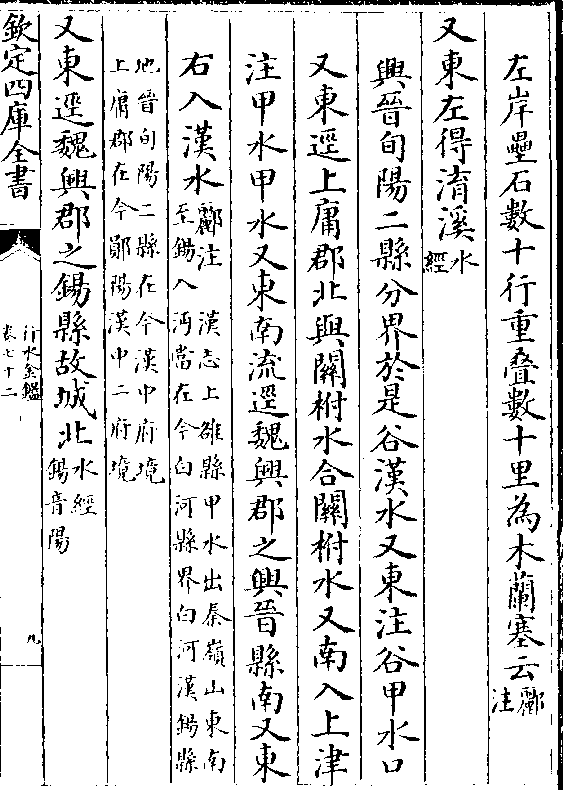 左岸壘石數十行重疊數十里為木蘭塞云酈注
又東左得淯溪水經
興晉旬陽二縣分界於是谷漢水又東注谷甲水口
又東逕上庸郡北與關柎水合關柎水又南入上津
注甲水甲水又東南流逕魏興郡之興晉縣南又東
右入漢水酈注　漢志上雒縣甲水出秦嶺山東南
至錫入沔當在今白河縣界白河漢錫縣
地晉旬陽二縣在今漢中府境
上庸郡在今鄖陽漢中二府境
又東逕魏興郡之錫縣故城北水經
錫音陽
欽定四庫全書
行水金鑑
卷七十二
九